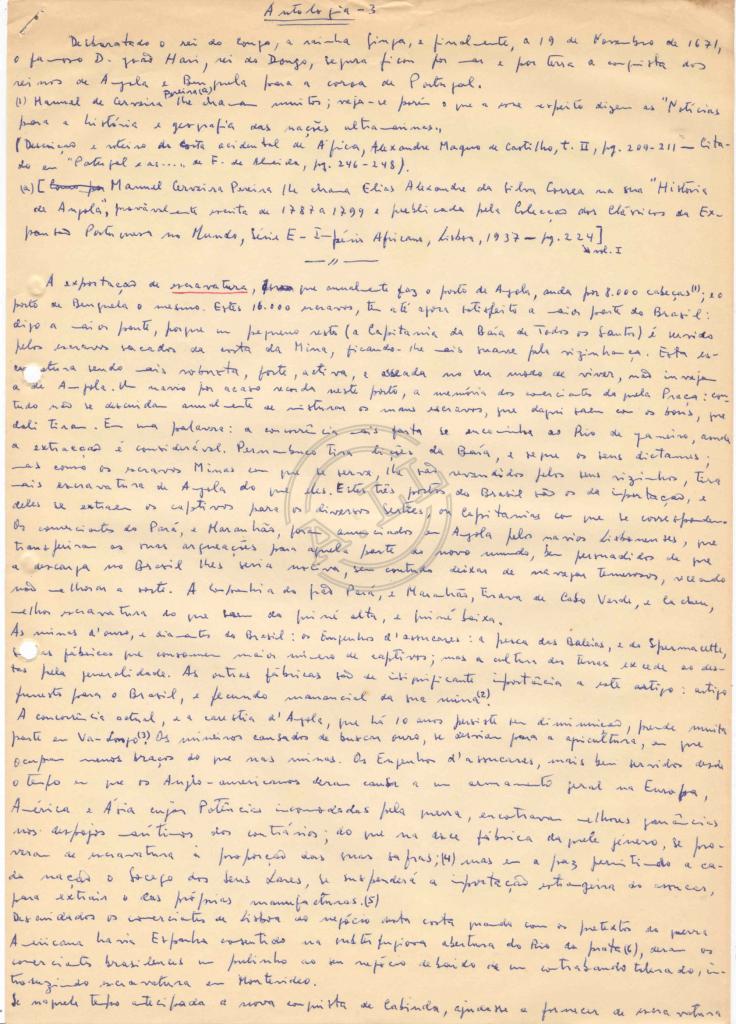 Antologia - 3
Desbaratado o rei do Congo, a rainha Ginga, e finalmente, a 19 de Novembro de 1671,
o famoso D. João Hari, rei do Dongo, segura ficou por mar e por terra a conquista dos
reinos de Angola e Benguela para a coroa de Portugal.
Pereira(a)
(1) Manuel de Cerveira lhe chamam muitos; veja-se porém o que a esse respeito dizem as "Notícias
para a história e geografia das nações ultramarinas".
(Descrição e roteiro da costa ocidental de África, Alexandre Magno de Castilho, t. II, pg. 209-211 — Cita-
do em "Portugal e as....." de F. de Almeida, pg. 246-248).
(a) [Manuel Cerveira Pereira lhe chama Elias Alexandre da Silva Correa na sua "História
de Angola", provàvelmente escrita de 1787 a 1799 e publicada pela Colecção dos Clássicos da Ex-
pansão Portuguesa no Mundo, Série E - Império Africano, Lisboa, 1937 - pg. 224]
vol. I
— // —
A exportação de escravatura, que anualmente faz o porto de Angola, anda por 8.000 cabeças(1); e o
porto de Benguela o mesmo. Estes 16.000 escravos, têm até agora satisfeito a maior parte do Brasil:
digo a maior parte, porque um pequeno resto (a Capitania da Baía de Todos os Santos) é servido
pelos escravos sacados da costa da Mina, ficando-lhe mais suave pela vizinhança. Esta es-
cravatura sendo mais robusta, forte, activa, e asseada no seu modo de viver, não inveja
a de Angola. Um navio por acaso recorda neste porto, a memória dos comerciantes daquela Praça: con-
tudo não se descuidam anualmente de misturar os maus escravos, que daqui saem com os bons, que
dali tiram. Em uma palavra: a concorrência mais vasta se encaminha ao Rio de Janeiro, aonde
a extracção é considerável. Pernambuco tira lições da Baía, e segue os seus dictames;
mas como os escravos Minas com que se serve, lhe são revendidos pelos seus vizinhos, tira
mais escravatura de Angola do que eles. Estes três portos do Brasil são os da importação, e
deles se extraem os captivos para os diversos Sertões, ou Capitanias com que se correspondem.
Os comerciantes do Pará, e Maranhão, foram anunciados em Angola pelos navios Lisbonenses, que
transferiram as suas arqueações para aquela parte do novo mundo, bem persuadidos de que
a descarga no Brasil lhes seria nociva, sem contudo deixar de navegar temerosos, receando
não melhorar a sorte. A Companhia do Grão Pará, e Maranhão, tirava de Cabo Verde, e Cacheu,
melhor escravatura do que saem da Guiné alta, e Guiné baixa.
As minas d'ouro, e diamantes do Brasil: os Engenhos d'assucares: a pesca das Baleias, e do Spermacetti,
são as fábricas que consomem maior número de captivos; mas a cultura das terras excede ao des-
tas pela generalidade. As outras fábricas são de insignificante importância a este artigo: artigo
funesto para o Brasil, e fecundo manancial da sua mina(2).
A concorrência actual, e a carestia d'Angola, que há 10 anos persiste sem diminuição, prende muita
parte em Va-Longo(3). Os mineiros cansados de buscar ouro, se desviam para a agricultura, em que
ocupam menos braços do que nas minas. Os Engenhos d'assucares, mais bem servidos desde
o tempo em que os Anglo-americanos deram causa a um armamento geral na Europa,
América e Ásia cujas Potências incomodadas pela guerra, encontravam melhores ganâncias
nos despojos marítimos dos contrários; do que na doce fábrica daquele género, se pro-
veram de escravatura à proporção das suas safras;(4) mas em a paz permitindo a ca-
da nação o Socego dos Seus Lares, se suspenderá a importação estrangeira do assucar,
para extrair o das próprias manufacturas.(5)
Descuidados os comerciantes de Lisboa do negócio desta costa quando com os pretextos da guerra
Americana havia Espanha consentido na subterfugiosa abertura do Rio da prata(6), deram os
comerciantes brasilenses um pulinho ao seu negócio debaixo de um contrabando tolerado, in-
troduzindo escravatura em Montevideo.
Se naquele tempo antecipada a nova conquista de Cabinda, ajudasse a fornecer de escravatura